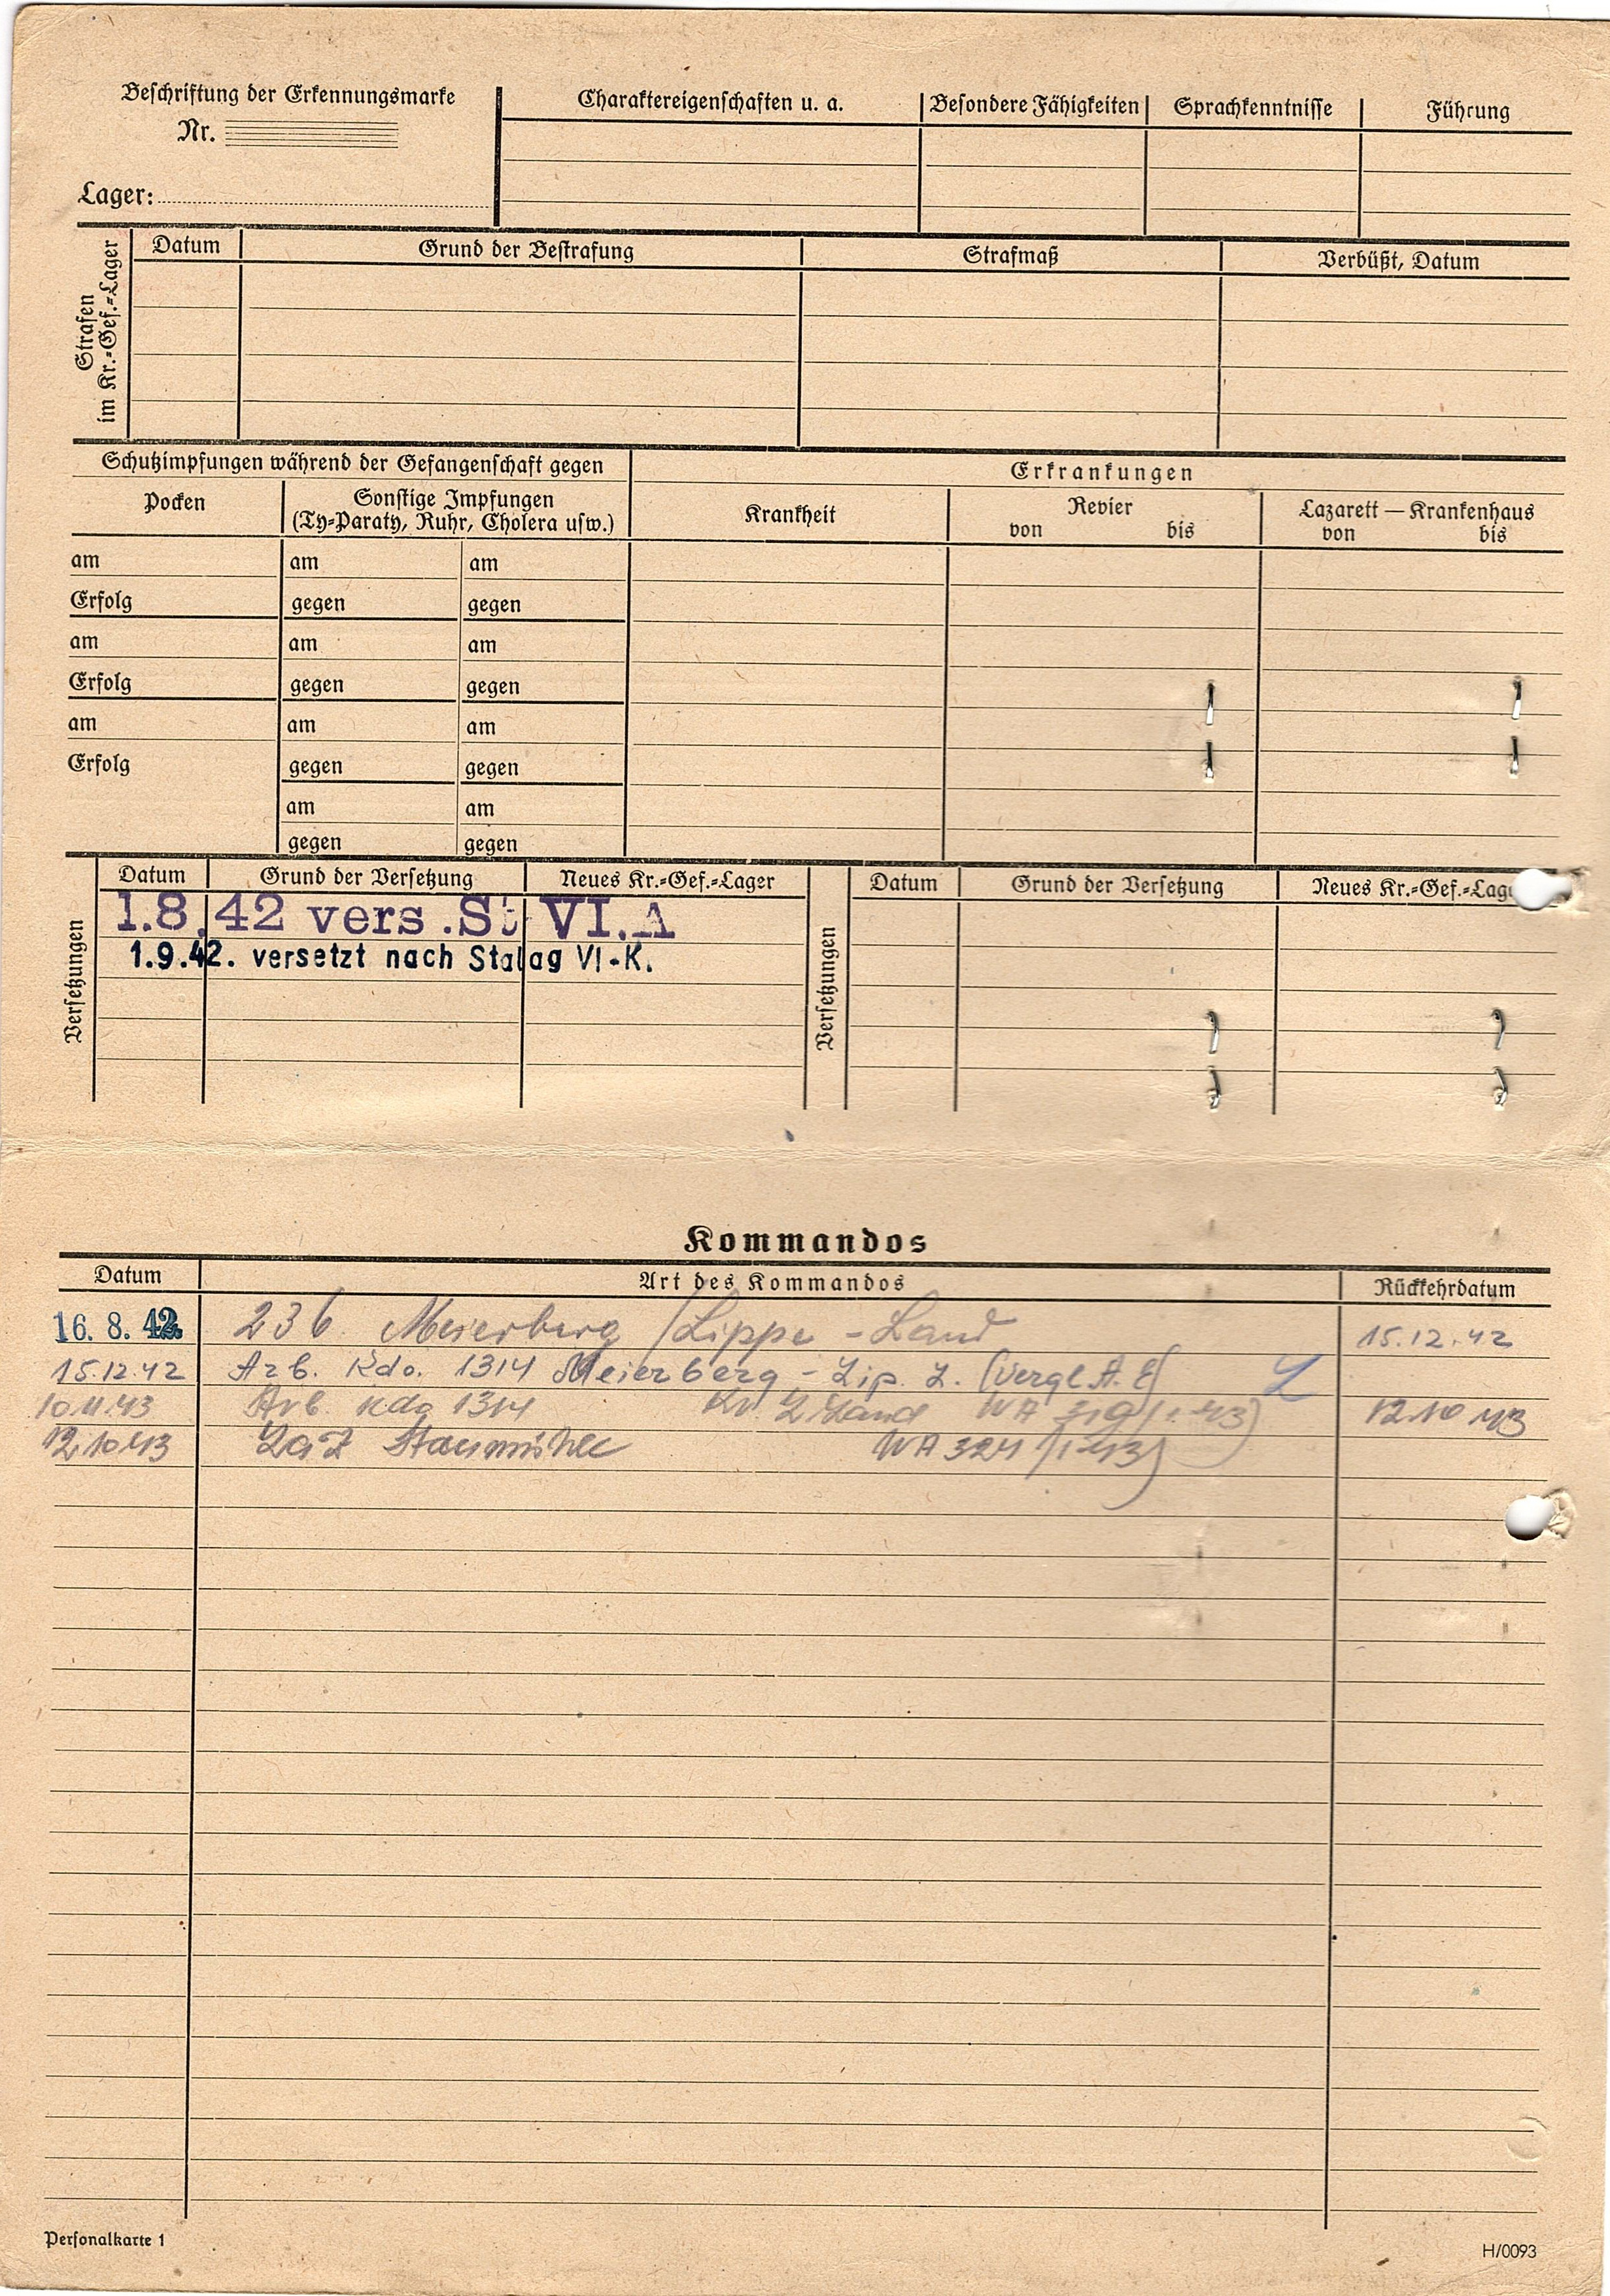 Beschriftung der Erkennungsmarke
Nr.
Lager:
Charaktereigenschaften u. a. Besondere Fähigkeiten Sprachkenntnisse Führung
Strafen
im Kr.=Gef.=Lager
Datum Grund der Bestrafung Strafmaß Verbüßt, Datum
Schutzimpfungen während der Gefangenschaft gegen
Erkrankungen
Pocken
Sonstige Impfungen
(Ty=Paraty, Ruhr, Cholera usw.)
Krankheit
Revier
von bis
Lazarett — Krankenhaus
von bis
am am am
Erfolg gegen gegen
am am am
Erfolg gegen gegen
am am am
Erfolg gegen gegen
am am
gegen gegen
Versetzungen
Datum Grund der Versetzung Neues Kr.=Gef.=Lager
1.8.42 vers.St VI.A
1.9.42. versetzt nach Stalag VI-K.
Versetzungen
Datum Grund der Versetzung Neues Kr.=Gef.=Lage
Kommandos
Datum Art des Kommandos Rückkehrdatum
16. 8. 42. 236 Meierberg /Lippe - Land 15.12.42
15.12.42 Arb. Kdo. 1314 Meierberg - Lip. L. (Vergl. A. E)
10.11.43 Arb Kdo 1314 WA 319 (1.43) 12.10.43
12.10.43 Laz Staumühle WA 324 (1.43)
Personalkarte 1
H/0093